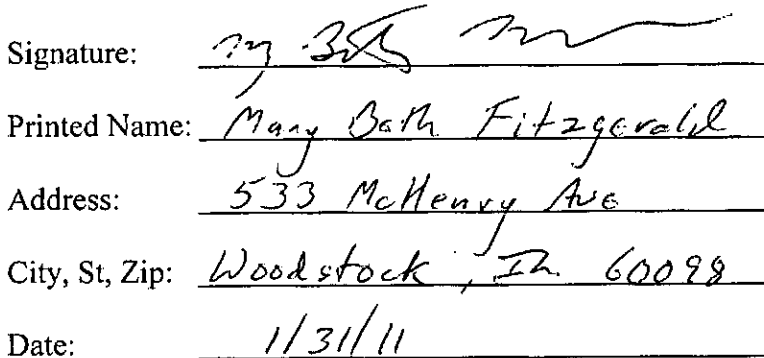 Signature:
Printed Name: Mary Beth Fitzgerald
Address: 533 McHenry Ave
City, St, Zip: Woodstock, IL 60098
Date: 1/31/11